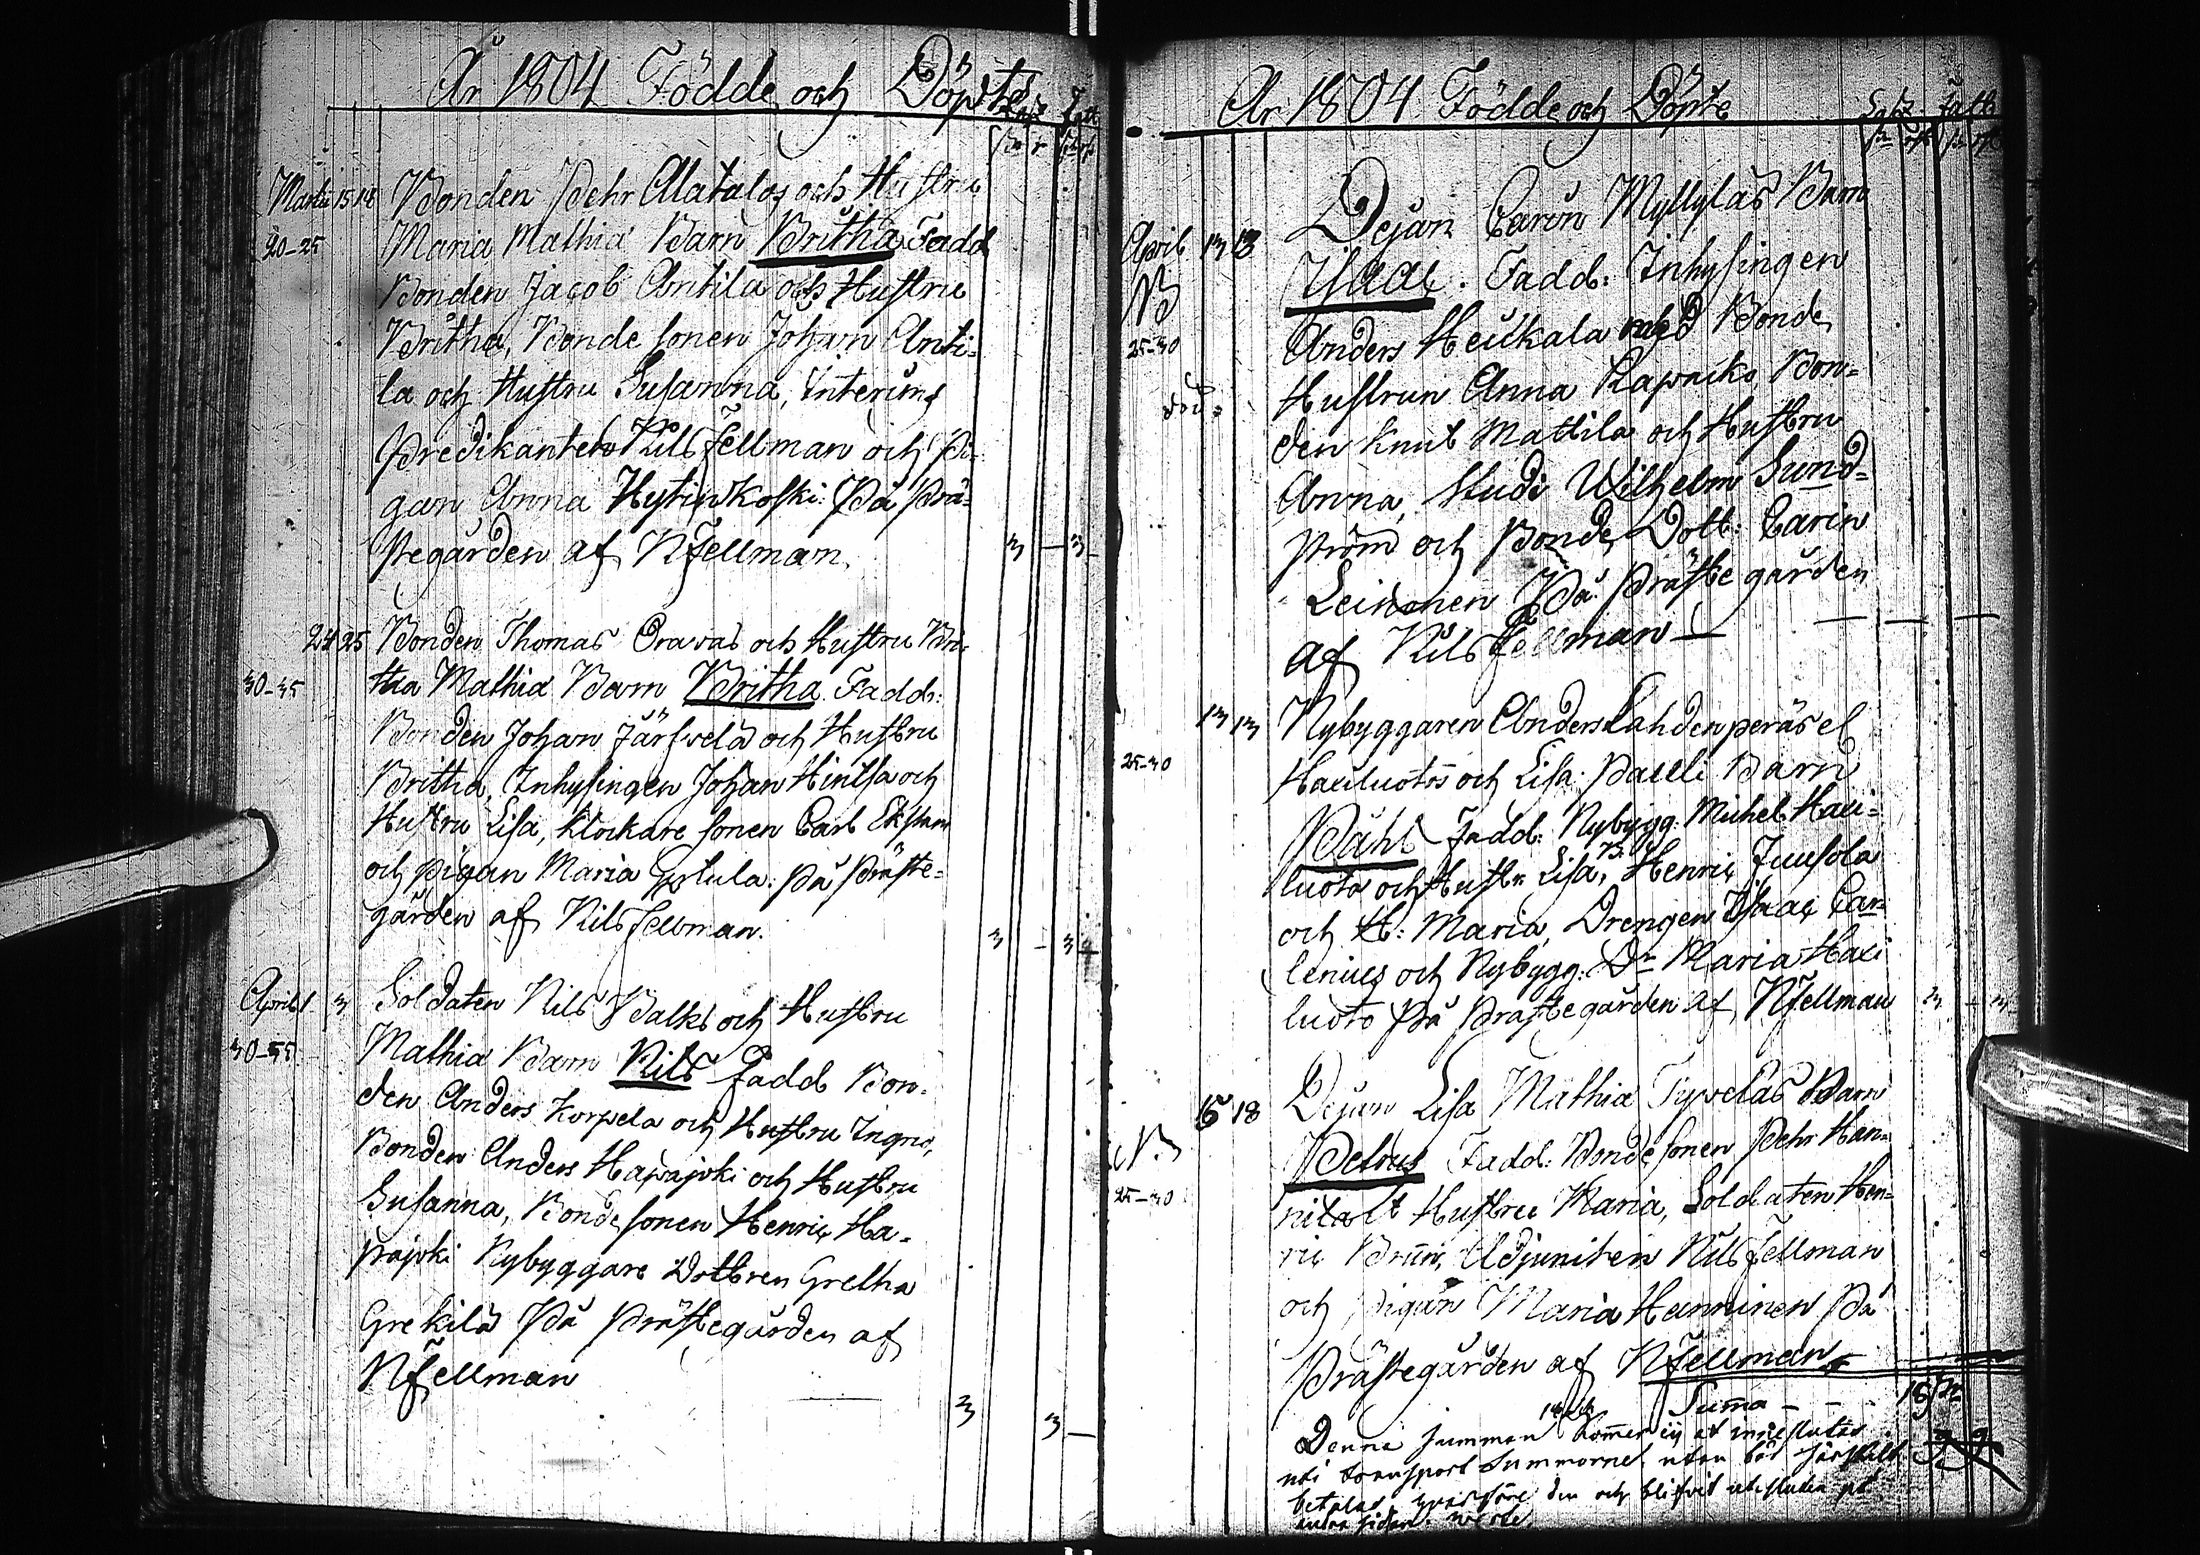 År 1804 Födde och Döpte
Martii 15 18 Bonden Pehr Alatalos och Hustru
20-25 Maria Mathiæ Barn Britha Fadd
Bonden Jacob Antila och Hustru
Britha, Bonde sonen Johan Anti-
la och Hustru Susanna, Interims
Predikanten Nils Fellman och Pi-
gan Anna Hytinkoski: På Prä-
stegården af NFellman. 3 - 3
24 25 Bonden Thomas Oravas och Hustru Bri-
30-35 tha Mathiæ Barn Britha Fadd:
Bonden Johan Järfvelä och Hustru
Britha, Inhysingen Johan Hintsa och
Hustru Lisa, Klockare sonen Carl Ekstam
och pigan Maria på Präste-
gården af Nils Fellman. 3 - 3
April 1 3 Soldaten Nils Balks och Hustru
30-35 Mathia Barn Nils Fadd Bon-
den Anders Korpela och Hustru
Bonden Anders Hapajoki och Hustru
Susanna, Bonde sonen Henric Ha-
pajoki Nybyggare Dottren Gretha
Grekilä På Prästegården af
NFellman
3 3
År 1804 Födde och Döpte
Dejan Carin Myllyläs Barn
April 13 13 Isaac. Fadd: Inhysingen
Anders Heikkala Bonde
25-30
Hustrun Anna Bon-
den Knut Mattila och Hustru
Anna, Studi Wilhelm Sund-
ström och Bonde Dott: Carin
Leinonen På Präste gården
af Nils Fellman
13 13 Nybyggaren Anders Lahdenperäs el
25-30 Hauiluotos och Lisa: Pauli Barn
Påhl Fadd: Nybygg: Michel Haui-
luoto och Hustr Lisa, B: Henric Juusola
och H: Maria, Drengen Isaac Car-
lenius och Nybygg: Dr Maria Haui
luoto På Prästegården af NFellman 3 - 3
15 18 Dejan Lisa Mathiæ Tyveläs Barn
25-30 Petrus Fadd: Bonde sonen Pehr Han-
nila Hustru Maria, Soldaten Hen-
ric Brun, Adjuncten Nils Fellman
och pigan Maria Hanninen På
Prästegården af NFellman
Suma - - 18
Denna summan Kommer ej at inneslutas
uti transport Summorne, utan bör särskilt
betalas, den och blifvit utesluten på
andra sidan